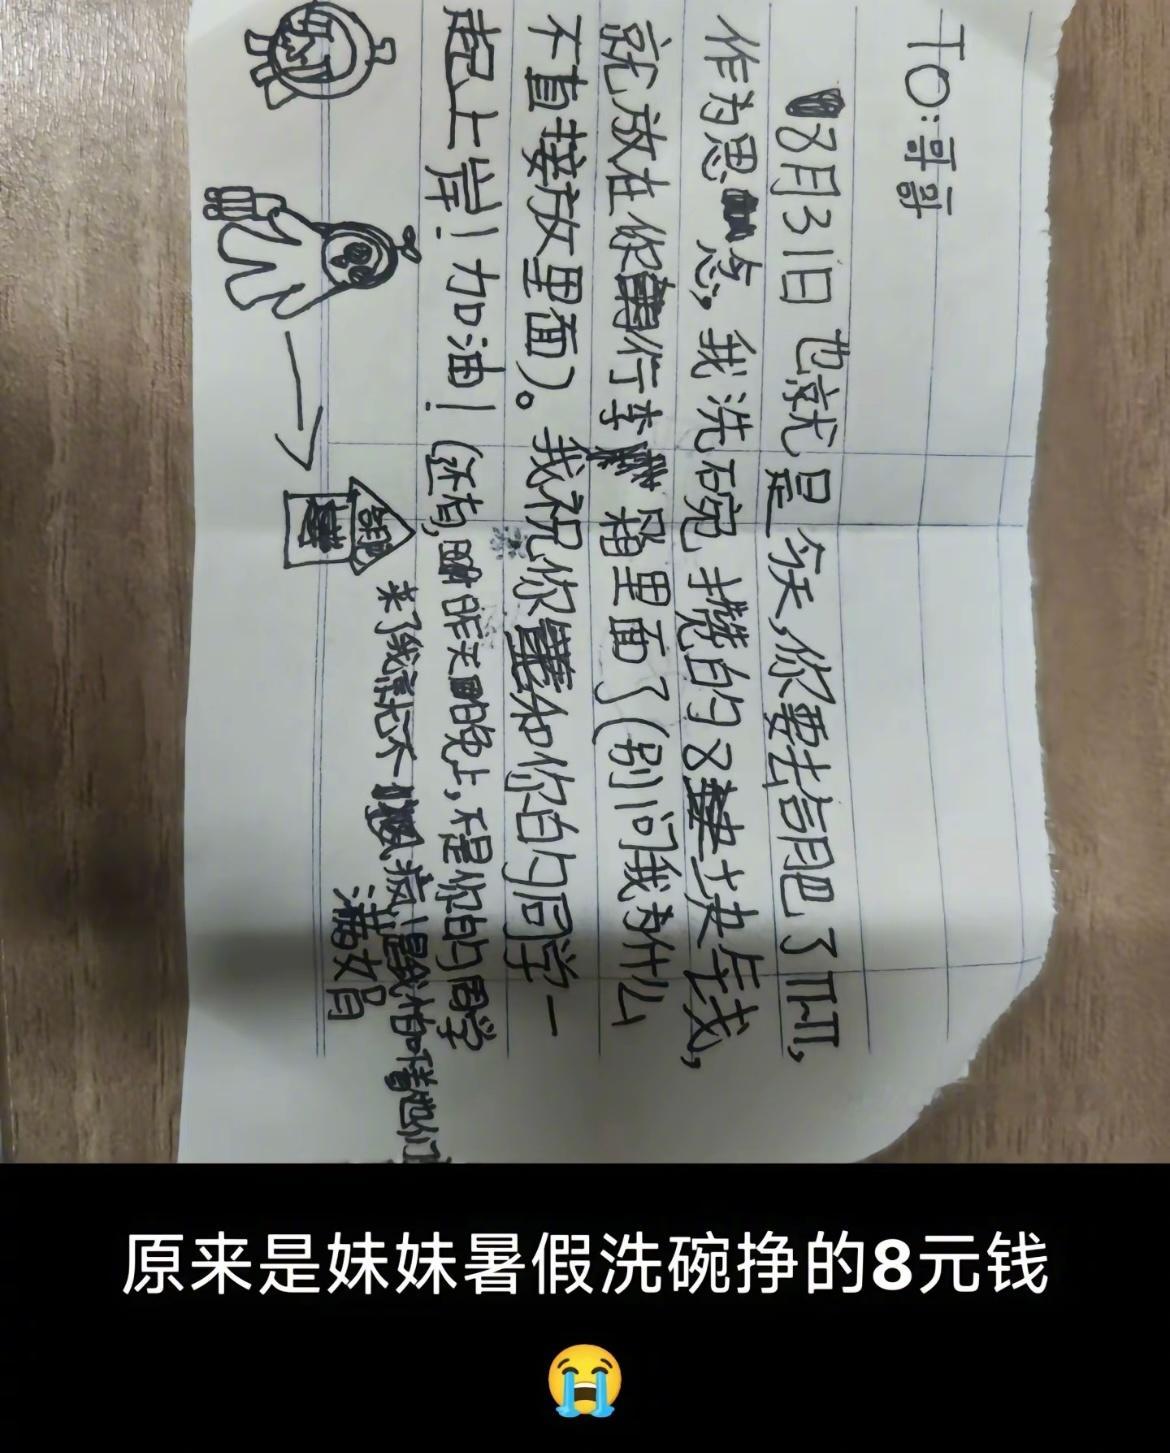 TO:哥哥
8月31日也就是今天,你要去合肥了TT,
作为思念,我洗碗攒的8块钱,
就放在你行李箱里面了(别问我为什么
不直接放里面)。我祝你和你的同学一
起上岸!加油!(还有,昨天晚上,不是你的同学
来了我就不疯!是我怕吓着他们
满文月
合肥
原来是妹妹暑假洗碗挣的8元钱
😭